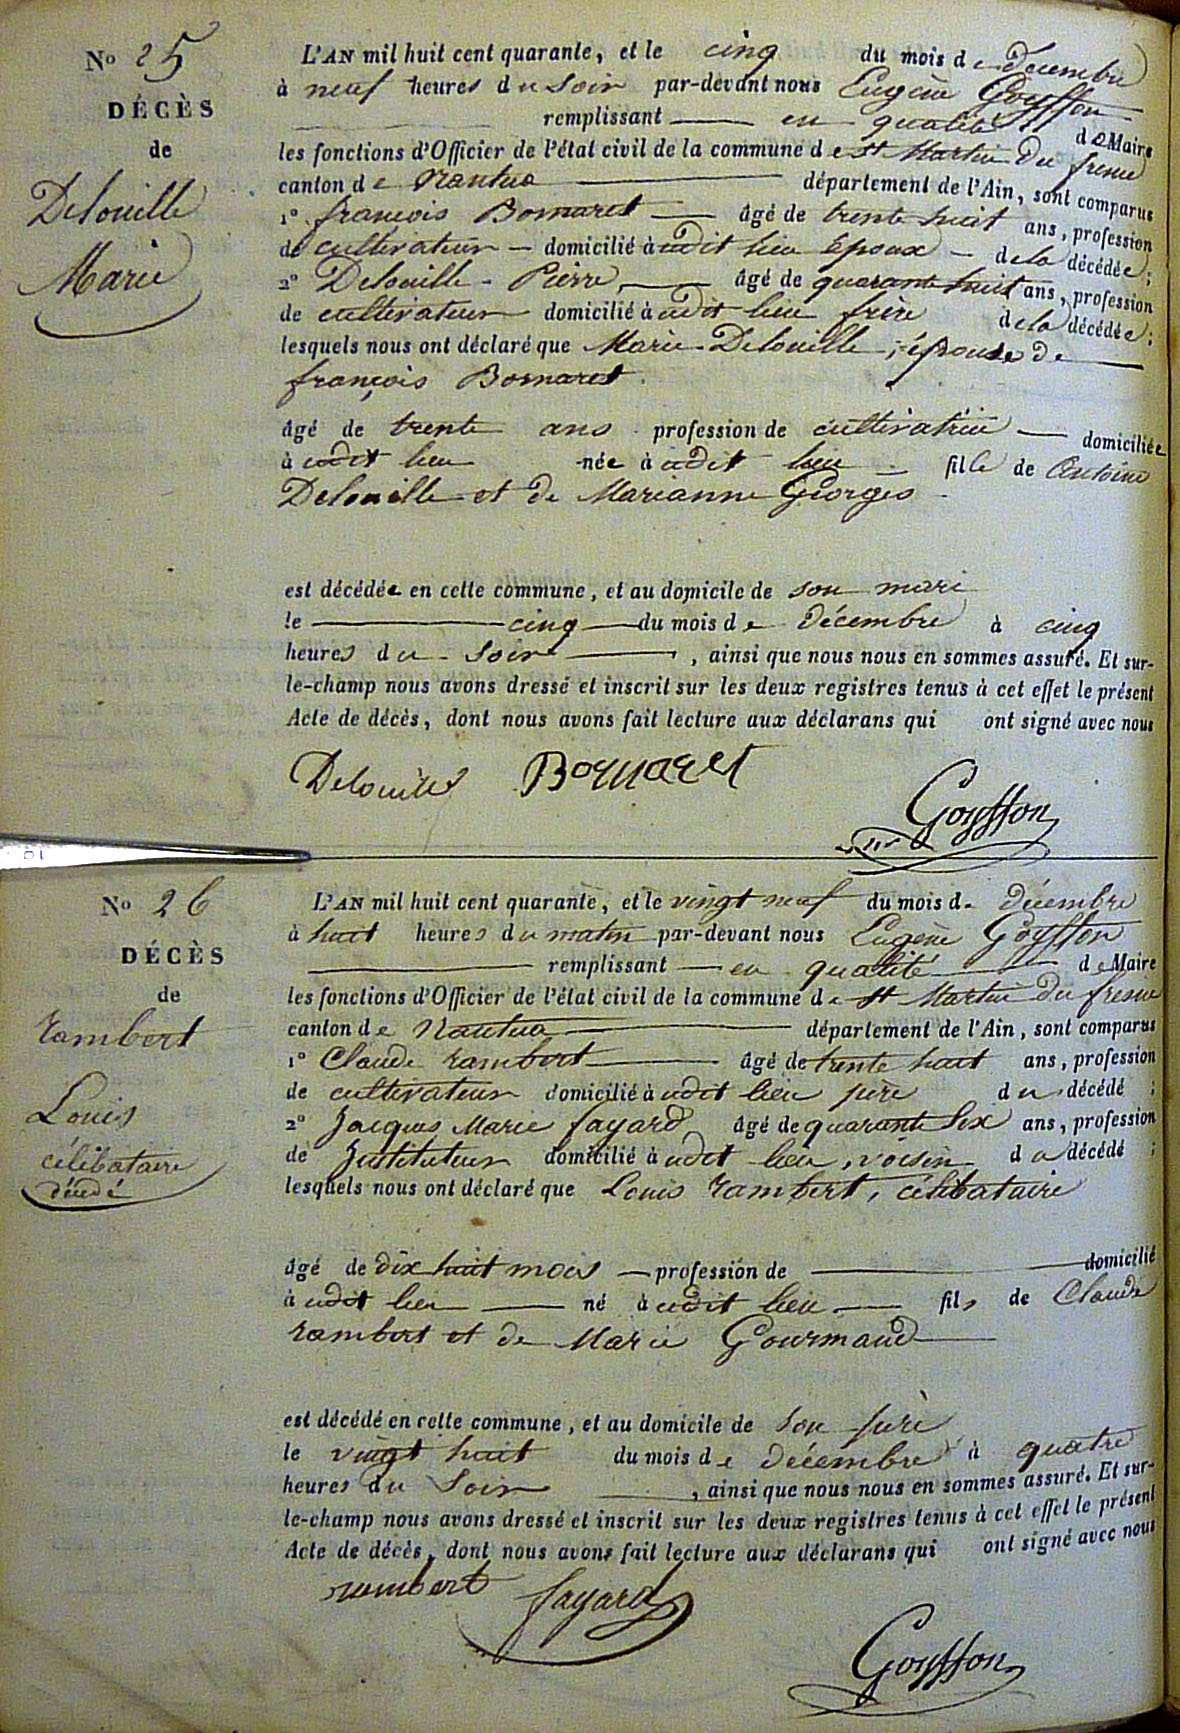 No 25
DÉCÈS
de
Delouille
Marie
L'AN mil huit cent quarante, et le cinq du mois de décembre
à neuf heures du soir par-devant nous Eugène Goyffon
remplissant en qualité de Maire
les fonctions d'Officier de l'état civil de la commune de St Martin du fresne
canton de Nantua département de l'Ain, sont comparus
1° françois Bornaret âgé de trente huit ans, profession
de cultivateur domicilié à udit lieu époux de la décédée;
2° Delouille Pierre âgé de quarante huit ans, profession
de cultivateur domicilié à udit lieu frère de la décédée;
lesquels nous ont déclaré que Marie Delouille, épouse de
françois Bornaret.
âgé de trente ans profession de cultivatrice domiciliée
à udit lieu née à udit lieu fille de Antoine
Delouille et de Marianne Georges
est décédée en cette commune, et au domicile de son mari
le cinq du mois de décembre à cinq
heures du soir, ainsi que nous nous en sommes assuré. Et sur-
le-champ nous avons dressé et inscrit sur les deux registres tenus à cet effet le présent
Acte de décès, dont nous avons fait lecture aux déclarans qui ont signé avec nous
Delouille Bornaret
Goyffon
No 26
DÉCÈS
de
rambert
Louis
célibataire
décédé
L'AN mil huit cent quarante, et le vingt neuf du mois de décembre
à huit heures du matin par-devant nous Eugène Goyffon
remplissant en qualité de Maire
les fonctions d'Officier de l'état civil de la commune de St Martin du fresne
canton de Nantua département de l'Ain, sont comparus
1° Claude rambert âgé de trente huit ans, profession
de cultivateur domicilié à udit lieu père du décédé;
2° Jacques Marie fayard âgé de quarante six ans, profession
de Instituteur domicilié à udit lieu, voisin du décédé;
lesquels nous ont déclaré que Louis rambert, célibataire
âgé de dix huit mois profession de domicilié
à udit lieu né à udit lieu fils de Claude
rambert et de Marie Gourmand
est décédé en cette commune, et au domicile de son père
le vingt huit du mois de décembre à quatre
heures du soir, ainsi que nous nous en sommes assuré. Et sur-
le-champ nous avons dressé et inscrit sur les deux registres tenus à cet effet le présent
Acte de décès, dont nous avons fait lecture aux déclarans qui ont signé avec nous
rambert fayard
Goyffon